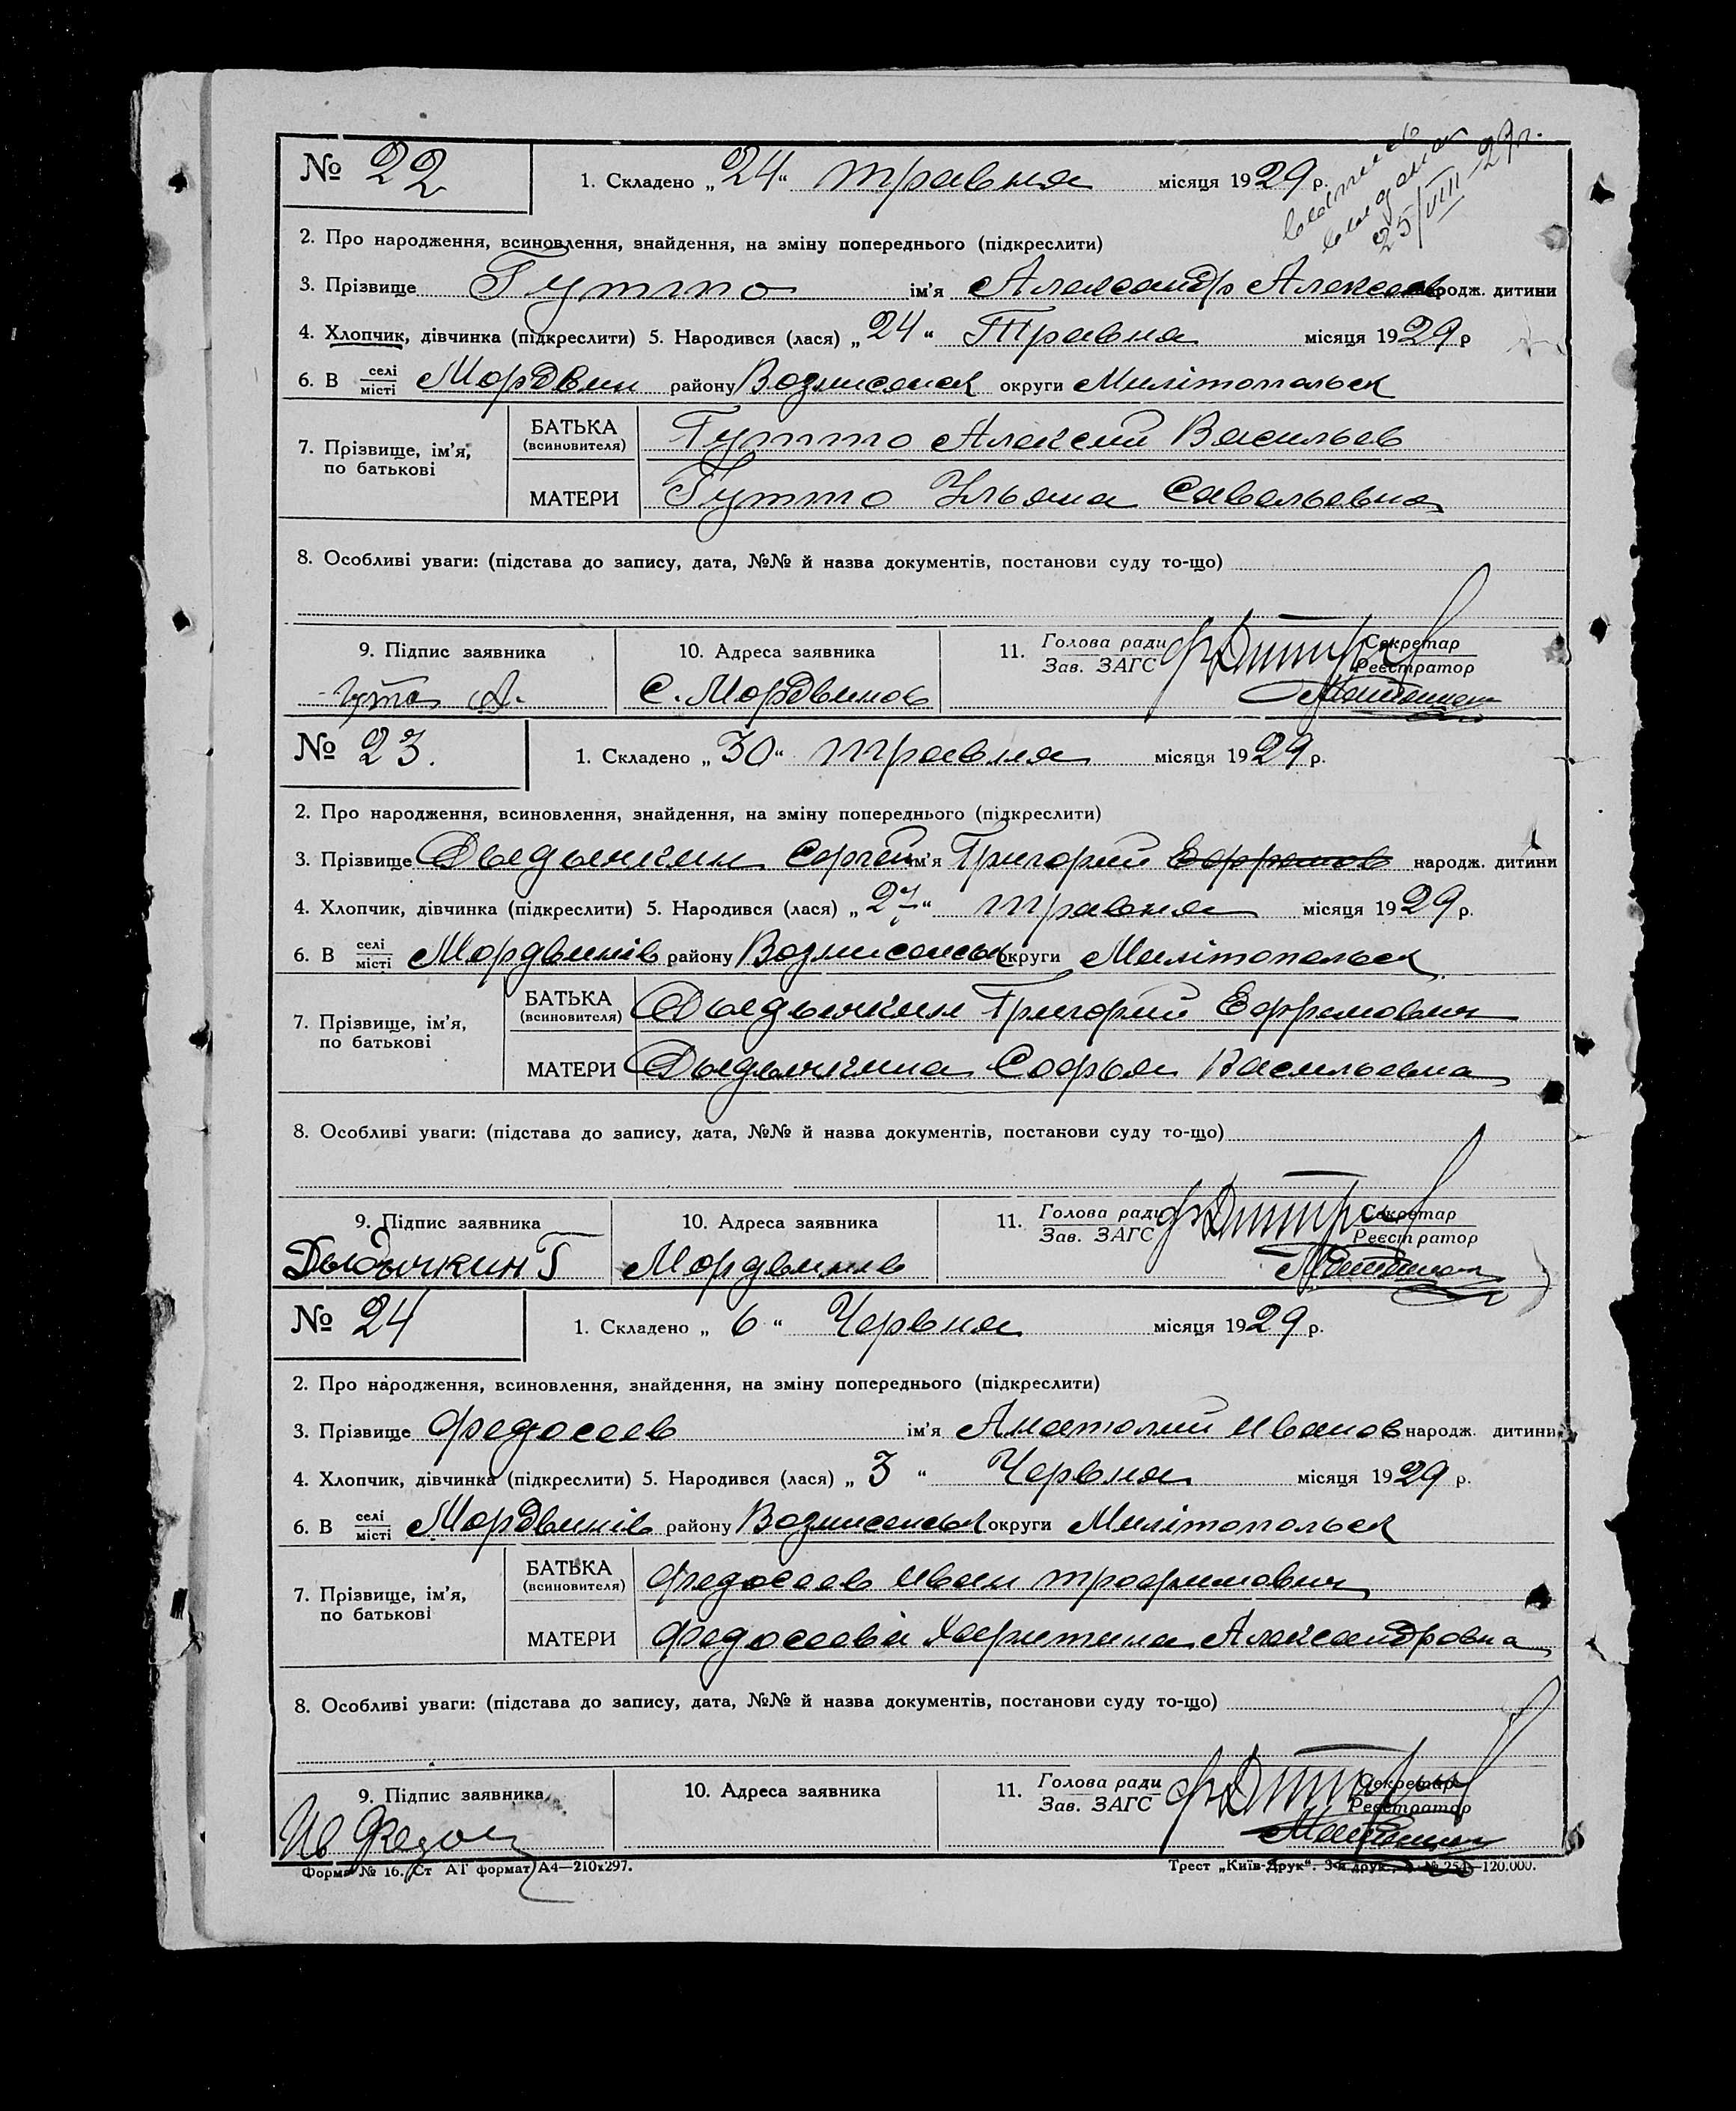 № 22
1. Складено „24“ травня місяця 1929 р.
выдана
25/VIII-29г.
2. Про народження, всиновлення, знайдення, на зміну попереднього (підкреслити)
3. Прізвище Гутто ім'я Александр Алексеев народж. дитини
4. Хлопчик, дівчинка (підкреслити) 5. Народився (лася) „24“ Травня місяця 1929 р
6. В селі місті Мордвин району Вознисенск округи Милітопольск
7. Прізвище, ім'я, по батькові
БАТЬКА (всиновителя) Гутто Алексей Васильев
МАТЕРИ Гутто Ульяна Савельевна
8. Особливі уваги: (підстава до запису, дата, №№ й назва документів, постанови суду то-що)
9. Підпис заявника 10. Адреса заявника 11. Голова ради Зав. ЗАГС Секретар Реєстратор
Гутто А. С. Мордвинов
№ 23.
1. Складено „30“ травня місяця 1929 р.
2. Про народження, всиновлення, знайдення, на зміну попереднього (підкреслити)
3. Прізвище Дыдычкин Сергей ім'я Григорий Ефремов народж. дитини
4. Хлопчик, дівчинка (підкреслити) 5. Народився (лася) „27“ травня місяця 1929 р.
6. В селі місті Мордвинів району Вознисенськ округи Милітопольск
7. Прізвище, ім'я, по батькові
БАТЬКА (всиновителя) Дыдычкин Григорий Ефремович
МАТЕРИ Дыдычкина Софья Васильевна
8. Особливі уваги: (підстава до запису, дата, №№ й назва документів, постанови суду то-що)
9. Підпис заявника 10. Адреса заявника 11. Голова ради Зав. ЗАГС Секретар Реєстратор
Дыдычкин Г Мордвинив
№ 24
1. Складено „6“ Червня місяця 1929 р.
2. Про народження, всиновлення, знайдення, на зміну попереднього (підкреслити)
3. Прізвище Федосеев ім'я Анатолий Иванов народж. дитини
4. Хлопчик, дівчинка (підкреслити) 5. Народився (лася) „3“ Червня місяця 1929 р.
6. В селі місті Мордвинів району Вознисенськ округи Милітопольск
7. Прізвище, ім'я, по батькові
БАТЬКА (всиновителя) Федосеев Иван трофимович
МАТЕРИ Федосеева Харитина Александровна
8. Особливі уваги: (підстава до запису, дата, №№ й назва документів, постанови суду то-що)
9. Підпис заявника 10. Адреса заявника 11. Голова ради Зав. ЗАГС Секретар Реєстратор
Ив Федос
Форма № 16. Ст АТ формат А4—210х297.
Трест „Київ-Друк“. 3-я друк. № 254—120.000.